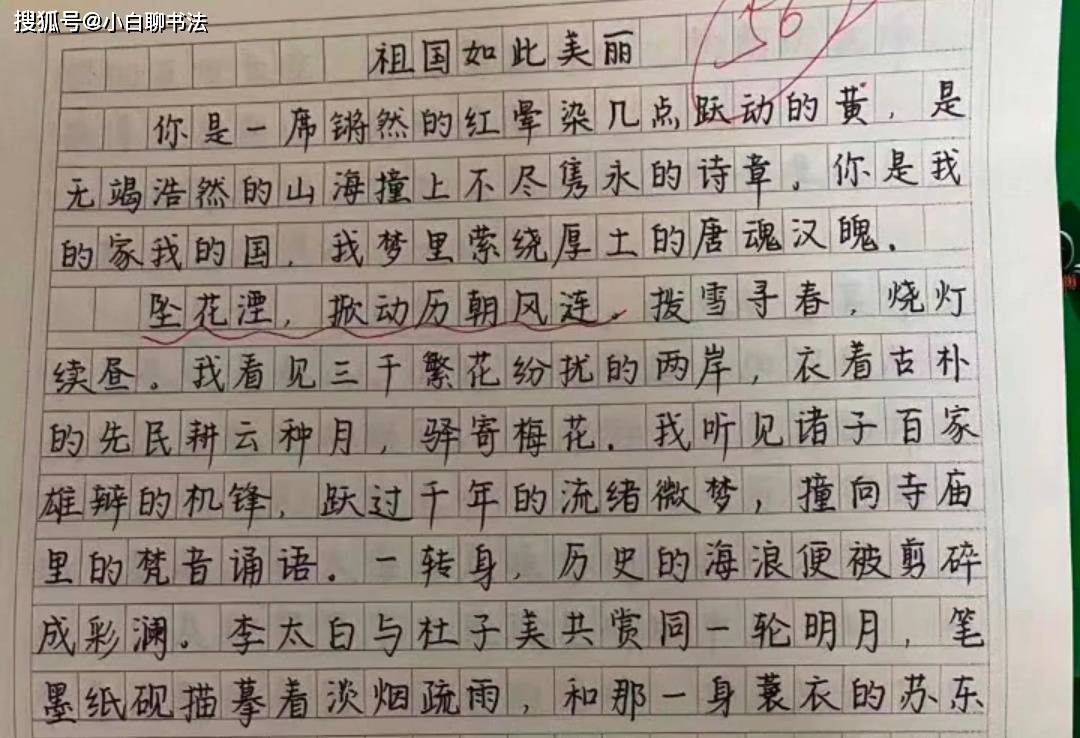 搜狐号@小白聊书法
56
祖国如此美丽
你是一席锵然的红晕染几点跃动的黄，是
无竭浩然的山海撞上不尽隽永的诗章。你是我
的家我的国，我梦里萦绕厚土的唐魂汉魄。
坠花湮，掀动历朝风涟。拨雪寻春，烧灯
续昼。我看见三千繁花纷扰的两岸，衣着古朴
的先民耕云种月，驿寄梅花。我听见诸子百家
雄辩的机锋，跃过千年的流绪微梦，撞向寺庙
里的梵音诵语。一转身，历史的海浪便被剪碎
成彩澜。李太白与杜子美共赏同一轮明月，笔
墨纸砚描摹着淡烟疏雨，和那一身蓑衣的苏东